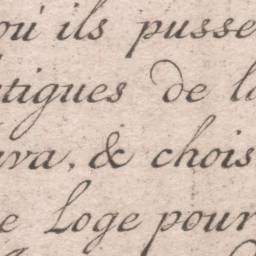 où ils pusse
tigues de l
va, & chois
e Loge pour